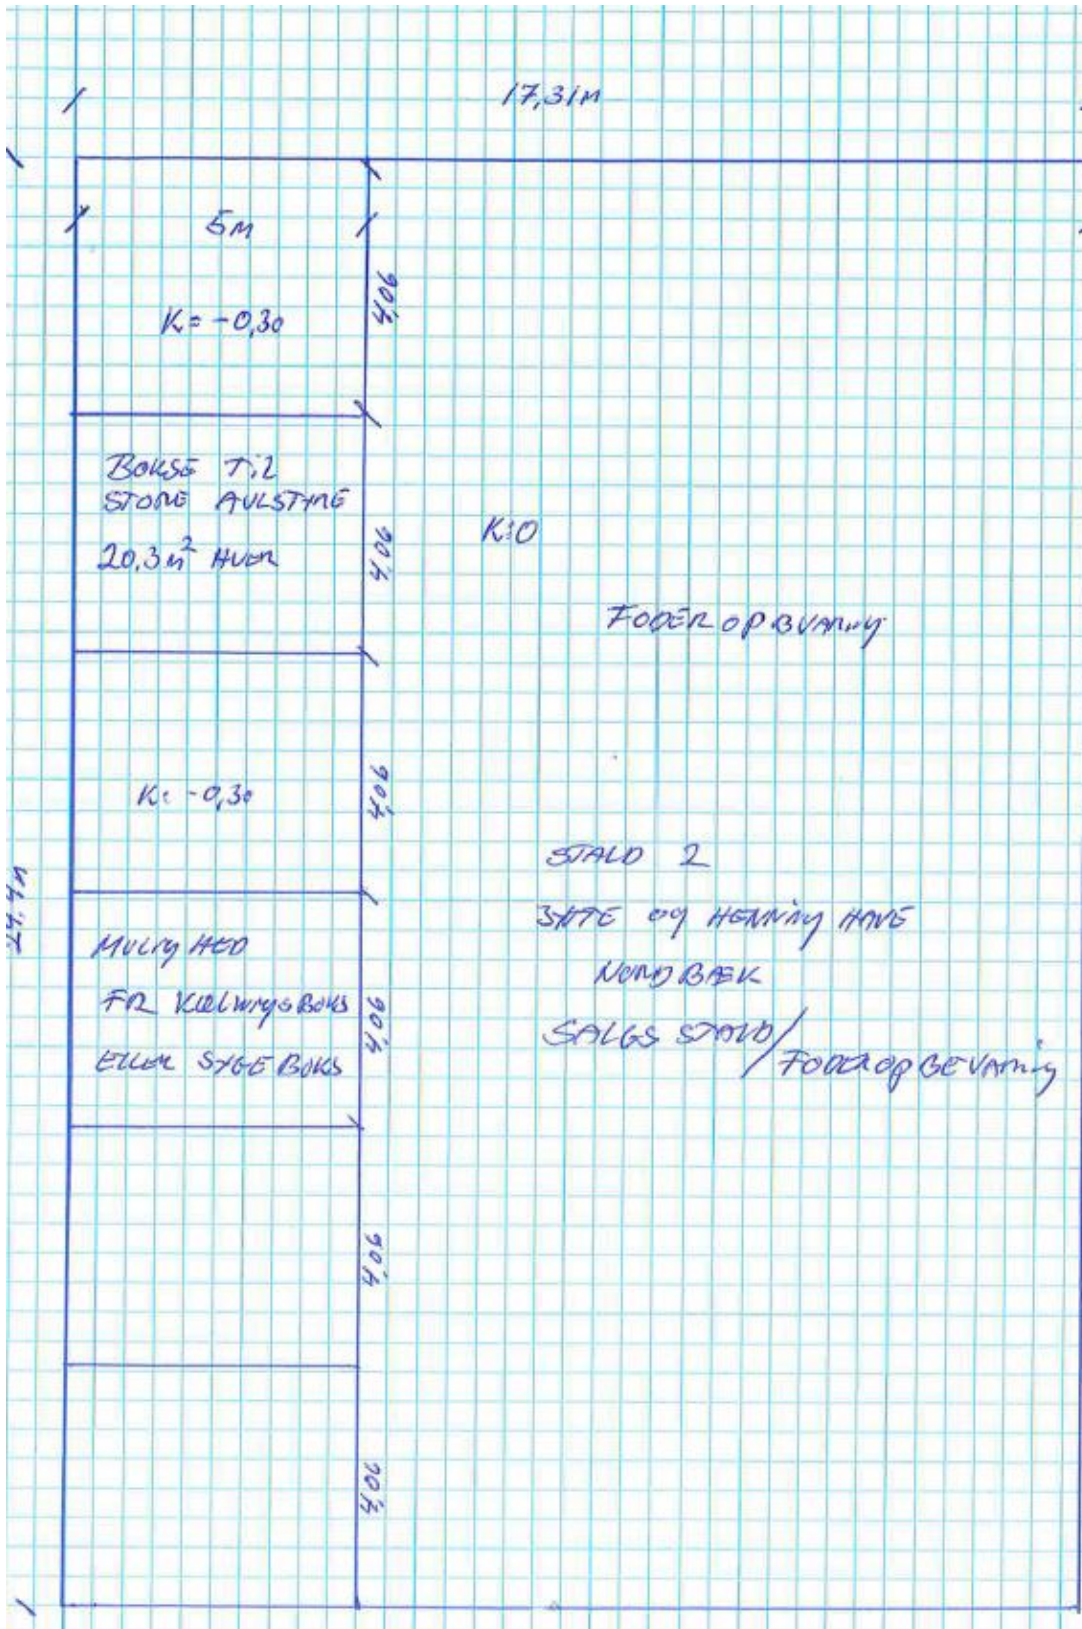 17,31M
5M
K= -0,30
4,06
BOKSE Til
STORE AVLSTYRE
20,3 m² HVER
4,06
K=0
FODER OPBVARING
K= -0,30
4,06
24,4M
STALD 2
OG HENNING HAVE
NORDBÆK
SALGS STALD/
FODEROPBEVARING
MULIGHED
FR KÆLVNINGSBOKS
ELLER SYGEBOKS
4,06
4,06
4,06